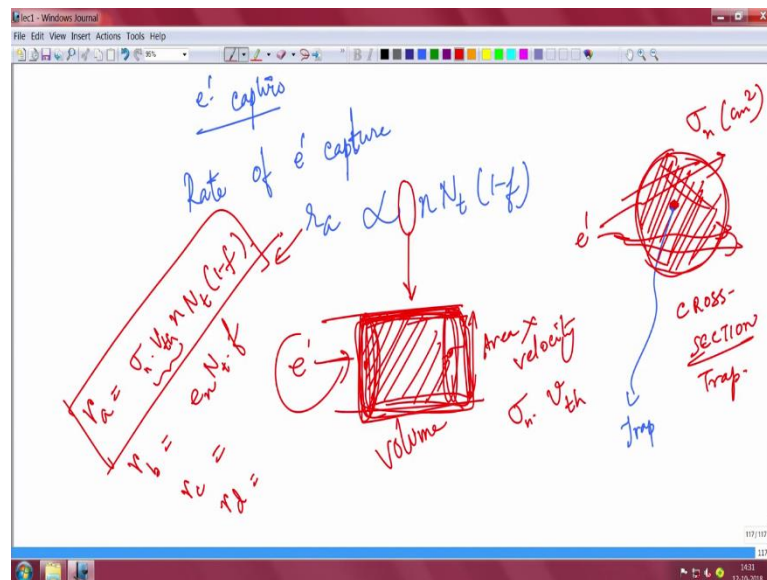 lec1 - Windows Journal
File Edit View Insert Actions Tools Help
96%
B I
e' capture
Rate of e' capture
ra ∝ n Nt (1-f)
ra = σn. Vth n Nt (1-f).
rb = en Nt. f
rc =
rd =
e'
Area x
velocity
σn. Vth
Volume
σn (cm²)
e'
CROSS-
SECTION
Trap.
Trap
117/117
117
14:31
12-10-2018